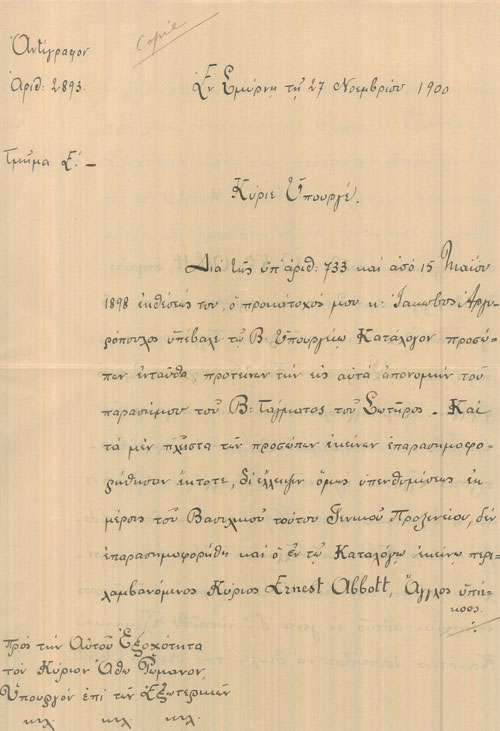 Copie
Ἀντίγραφον
Ἀριθ: 2893.
Ἐν Σμύρνῃ τῇ 27 Νοεμβρίου 1900
Τμῆμα Σ΄. –
Κύριε Ὑπουργέ,
Διὰ τῆς ὑπ' ἀριθ: 733 καὶ ἀπὸ 15 Μαΐου
1898 ἐκθέσεώς του, ὁ προκάτοχός μου κ. Ἰάκωβος Ἀργυ-
ρόπουλος ὑπέβαλε τῷ Β. Ὑπουργείῳ Κατάλογον προσώ-
πων ἐνταῦθα, προτείνων τὴν εἰς αὐτὰ ἀπονομὴν τοῦ
παρασήμου τοῦ Β: Τάγματος τοῦ Σωτῆρος. Καὶ
τὰ μὲν πλεῖστα τῶν προσώπων ἐκείνων ἐπαρασημοφο-
ρήθησαν ἔκτοτε, δι' ἔλλειψιν ὅμως ὑπενθυμίσεως ἐκ
μέρους τοῦ Βασιλικοῦ τούτου Γενικοῦ Προξενείου, δὲν
ἐπαρασημοφορήθη καὶ ὁ ἐν τῷ Καταλόγῳ ἐκείνῳ περι-
λαμβανόμενος Κύριος Ernest Abbott, Ἄγγλος ὑπή-
κοος.
Πρὸς τὴν Αὐτοῦ Ἐξοχότητα
τὸν Κύριον Ἄθω Ῥωμᾶνον,
Ὑπουργὸν ἐπὶ τῶν Ἐξωτερικῶν
κτλ. κτλ. κτλ.